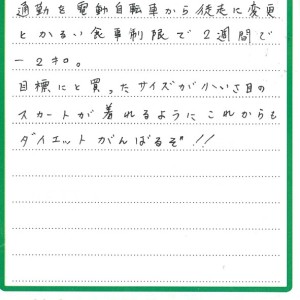 通勤を電動自転車から徒走に変更
とかるい食事制限で2週間で
-2キロ。
目標にと買ったサイズが小いさ目の
スカートが着れるようにこれからも
ダイエットがんばるぞ!!